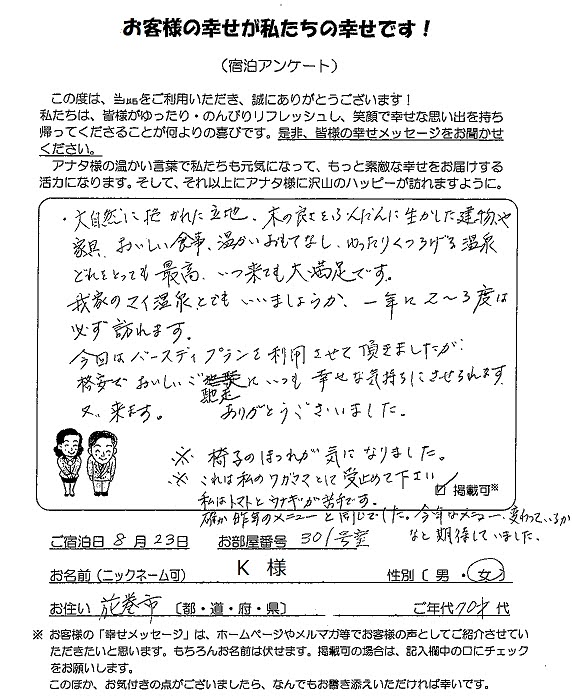 お客様の幸せが私たちの幸せです！
（宿泊アンケート）
この度は、当館をご利用いただき、誠にありがとうございます！
私たちは、皆様がゆったり・のんびりリフレッシュし、笑顔で幸せな思い出を持ち
帰ってくださることが何よりの喜びです。是非、皆様の幸せメッセージをお聞かせ
ください。
アナタ様の温かい言葉で私たちも元気になって、もっと素敵な幸せをお届けする
活力になります。そして、それ以上にアナタ様に沢山のハッピーが訪れますように。
・大自然に抱かれた立地、木の良さをふんだんに生かした建物や
家具、おいしい食事、温かいおもてなし、ゆったりくつろげる温泉
どれをとっても最高、いつ来ても大満足です。
我家のマイ温泉とでもいいましょうか、一年に2〜3度は
必ず訪れます。
今回はバースディプランを利用させて頂きましたが、
格安でおいしいご馳走にいつも幸せな気持ちにさせられます
又、来ます。 ありがとうございました。
※ 椅子のほつれが気になりました。
※ これは私のワガママとして受止めて下さい
私はトマトとウナギが苦手です。
確か昨年のメニューと同じでした。今年はメニュー、変わっているか
なと期待していました。
☑ 掲載可※
ご宿泊日 8 月 23日 お部屋番号 301号室
お名前（ニックネーム可） K 様 性別（ 男 ・ 女 ）
お住い 花巻市 〔都・道・府・県〕 ご年代 70才 代
※ お客様の「幸せメッセージ」は、ホームページやメルマガ等でお客様の声としてご紹介させてい
ただきたいと思います。もちろんお名前は伏せます。掲載可の場合は、記入欄中の口にチェック
をお願いします。
このほか、お気付きの点がございましたら、なんでもお書き添えいただければ幸いです。